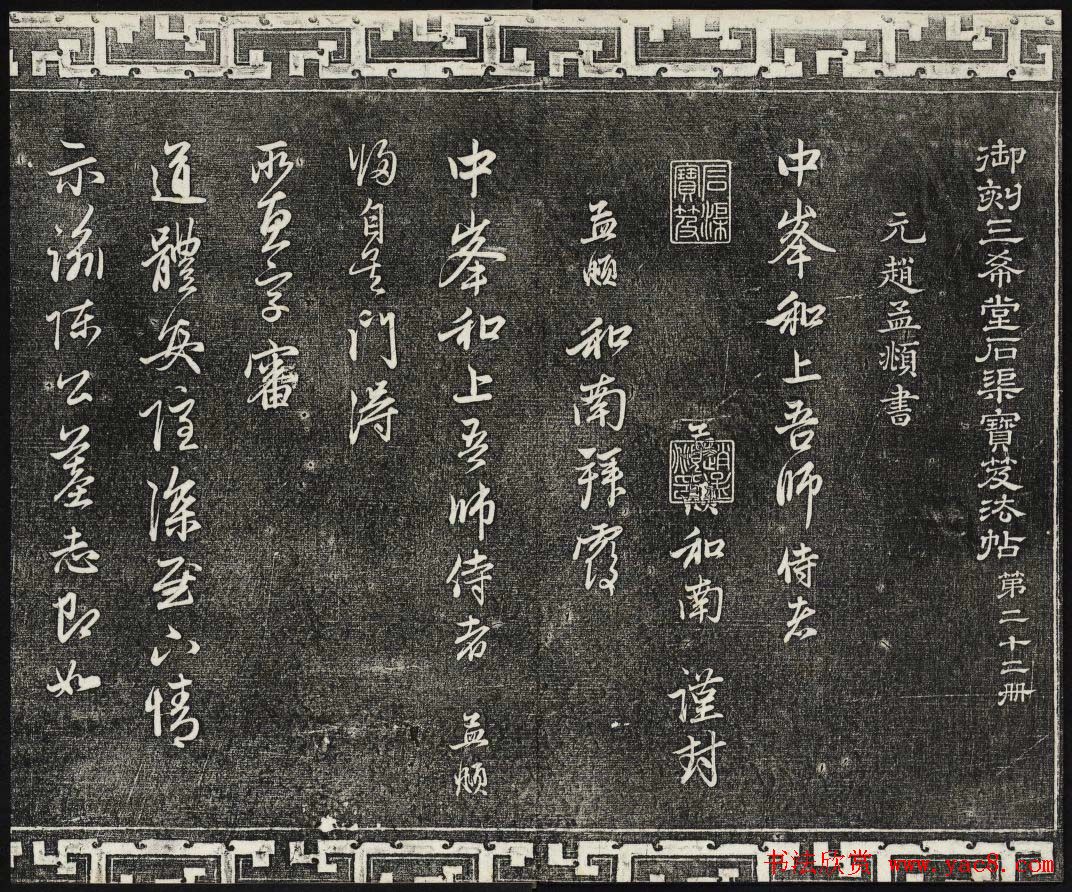 御刻三希堂石渠寶笈法帖 第二十二冊
元趙孟頫書
中峯和上吾師侍者
石渠寶笈
孟頫和南 謹封
孟頫 和南拜覆
中峯和上吾師侍者 孟頫
歸自吳門得
所惠字審
道體安隱深慰下情
示諭陳公墓志即如
书法欣赏 www.yac8.com